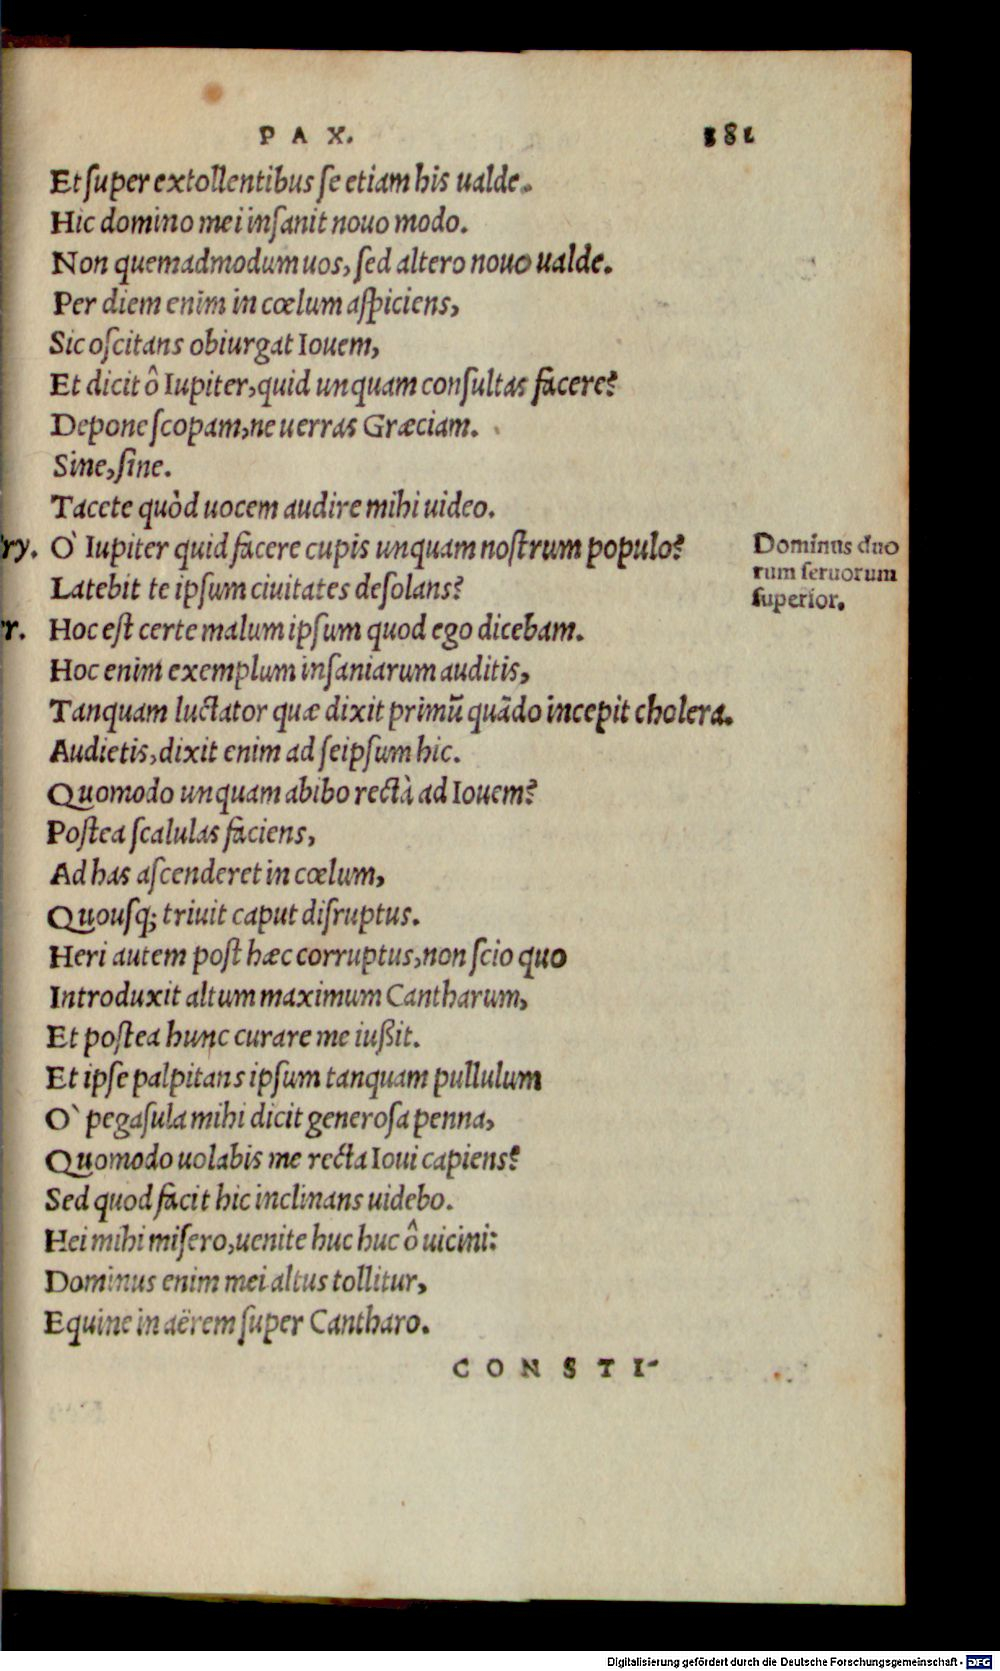 PAX. 181
Et ſuper extollentibus ſe etiam his ualde.
Hic domino mei inſanit nouo modo.
Non quemadmodum uos, ſed altero nouo ualde.
Per diem enim in cœlum aſpiciens,
Sic oſcitans obiurgat Iouem,
Et dicit ô Iupiter, quid unquam conſultas facere?
Depone ſcopam, ne uerras Græciam.
Sine, ſine.
Tacete quòd uocem audire mihi uideo.
ry. O` Iupiter quid facere cupis unquam noſtrum populo?
Latebit te ipſum ciuitates deſolans?
r. Hoc eſt certe malum ipſum quod ego dicebam.
Hoc enim exemplum inſaniarum auditis,
Tanquam luctator quæ dixit primũ quãdo incepit cholera.
Audietis, dixit enim ad ſeipſum hic.
Quomodo unquam abibo rectà ad Iouem?
Poſtea ſcalulas faciens,
Ad has aſcenderet in cœlum,
Quouſq; triuit caput diſruptus.
Heri autem poſt hæc corruptus, non ſcio quo
Introduxit altum maximum Cantharum,
Et poſtea hunc curare me iußit.
Et ipſe palpitans ipſum tanquam pullulum
O` pegaſula mihi dicit generoſa penna,
Quomodo uolabis me recta Ioui capiens?
Sed quod facit hic inclinans uidebo.
Hei mihi miſero, uenite huc huc ô uicini:
Dominus enim mei altus tollitur,
Equine in aërem ſuper Cantharo.
CONSTI-
Dominus duo
rum ſeruorum
ſuperior.
Digitalisierung gefördert durch die Deutsche Forschungsgemeinschaft - DFG